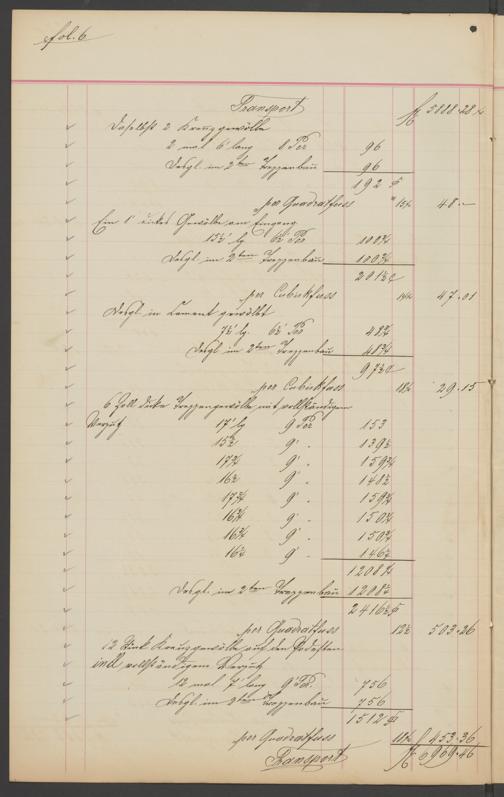 fol. 6
Transport f 5888.28
Daselbst 2 Kreuzgewölbe
2 mal 6' lang 8' Per 96
Desgl. im 2ten Treppenbau 96
192
per Quadratfuss 15x 48.-
Ein 1' dickes Gewölbe am Eingang
15½' lg 6½' Per 100¾
Desgl. im 2tem Treppenbau 100¾
201½
per Cubikfuss 14x 47.01
Desgl. in Cement gewölbt
7½' lg. 6½' Per 48¾
Desgl. im 2ten Treppenbau 48¾
97½
per Cubikfuss 18x 29.15
6 Zoll dicke Treppengewölbe mit vollständigem
Verputz 17' lg 9' Per 153
15½ 9' " 139½
17¾ 9' " 159¾
16½ 9' " 148½
17¾ 9' " 159¾
16¾ 9' " 150¾
16¾ 9' " 150¾
16¼ 9' " 146¼
1208¼
Desgl. im 2ten Treppenbau 1208¼
2416½
per Quadratfuss 12½ 503.26
12 Stück Kreuzgewölbe auf den Podesten
incl. vollständigem Verputz
12 mal 7' lang 9' Per. 756
Desgl. im 2ten Treppenbau 756
1512
per Quadratfuss 18x 453.36
Transport f 6969.46